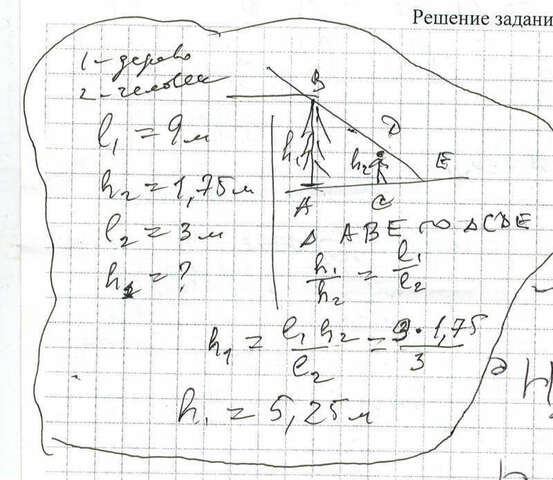 Решение задани
1 - дерево
2 - человек
l₁ = 9 м
h₂ = 1,75 м
l₂ = 3 м
h₁ = ?
B
D
h₁
h₂
E
A
C
Δ ABE ∾ ΔCDE
h₁/h₂ = l₁/l₂
h₁ = l₁ h₂/l₂ = 9 · 1,75/3
h₁ = 5,25 м